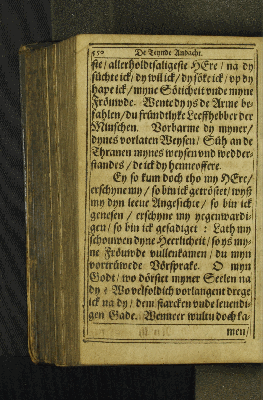 350 De Teynde Andacht.
ste/ allerholdtsaligeste HEre / na dy
süchte ick/ dy wil ick/ dy söke ick/ vp dy
hape ick/ myne Söticheit vnde myne
Fröuwde. Wente dy ys de Arme be-
fahlen/ du fründtlyke Leeffhebber der
Minschen. Vorbarme dy myner/
dynes vorlaten Weysen/ Süh an de
Thranen mynes weysen vnd wedder-
standes / de ick dy hennoffere.
Ey so kum doch tho my HEre/
erschyne my / so bin ick getröstet/ wyß
my dyn leeue Angesichte / so bin ick
genesen / erschyne my yegenwardi-
gen/ so bin ick gesadiget : Lath my
schouwen dyne Heerlicheit/ so ys my-
ne Fröuwde vullenkamen/ du myn
vortrüwede Vörsprake. O myn
Godt/ wo dörstet myner Seelen na
dy ? Wo velfoldich vorlangent drege
ick na dy/ dem starcken vnde leuendi-
gen Gade. Wenneer wultu doch ka-
men/